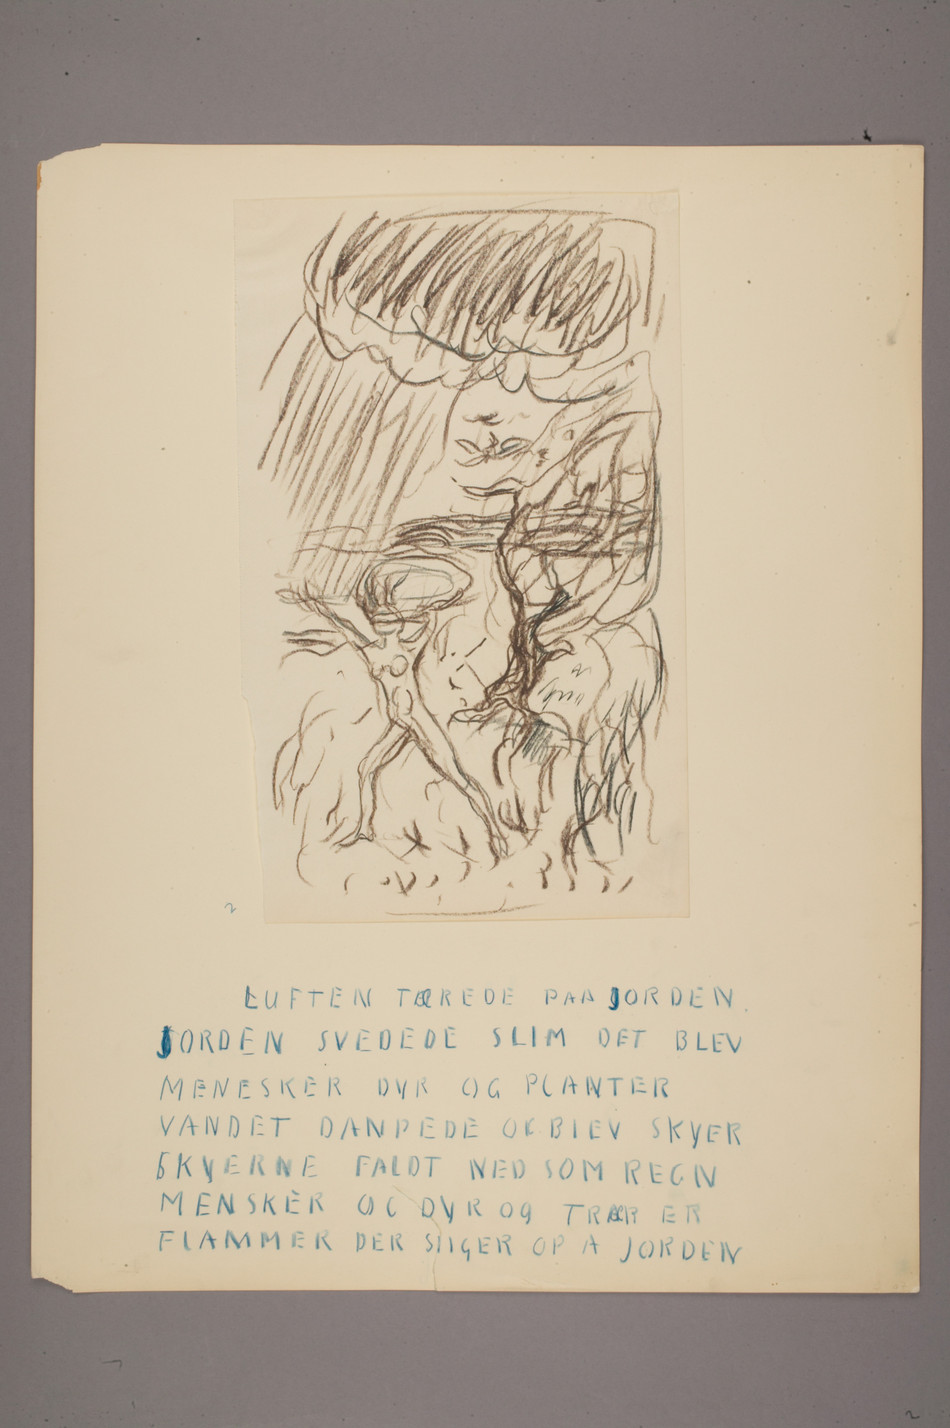 LUFTEN TÆREDE PAA JORDEN.
JORDEN SVEDEDE SLIM DET BLEV
MENESKER DYR OG PLANTER
VANDET DANPEDE OG BLEV SKYER
SKYERNE FALDT NED SOM REGN
MENSKER OG DYR OG TRÆR ER
FLAMMER DER STIGER OP A JORDEN